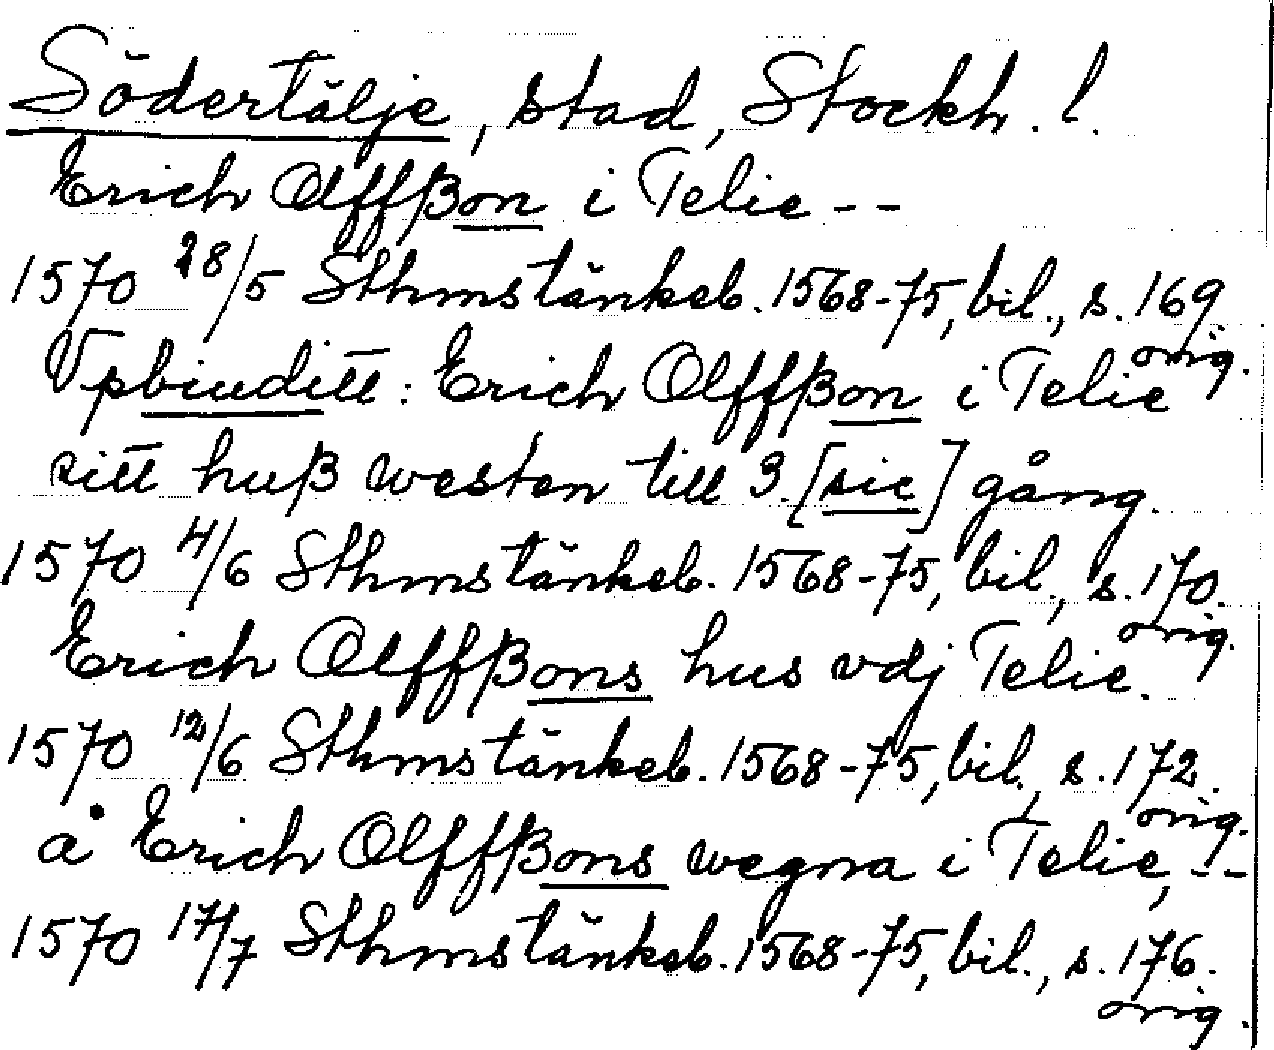 Södertälje, stad, Stockh. l.
Erich Olffßon i Telie --
1570 28/5 Sthmstänkeb. 1568-75, bil., s. 169.
orig.
Vpbiuditt: Erich Olffßon i Telie
sitt huß westen till 3. [sic] gång.
1570 4/6 Sthmstänkeb. 1568-75, bil., s. 170.
orig.
Erich Olffßons hus vdj Telie.
1570 12/6 Sthmstänkeb. 1568-75, bil., s. 172.
orig.
å Erich Olffßons wegna i Telie, --
1570 17/7 Sthmstänkeb. 1568-75, bil., s. 176.
orig.